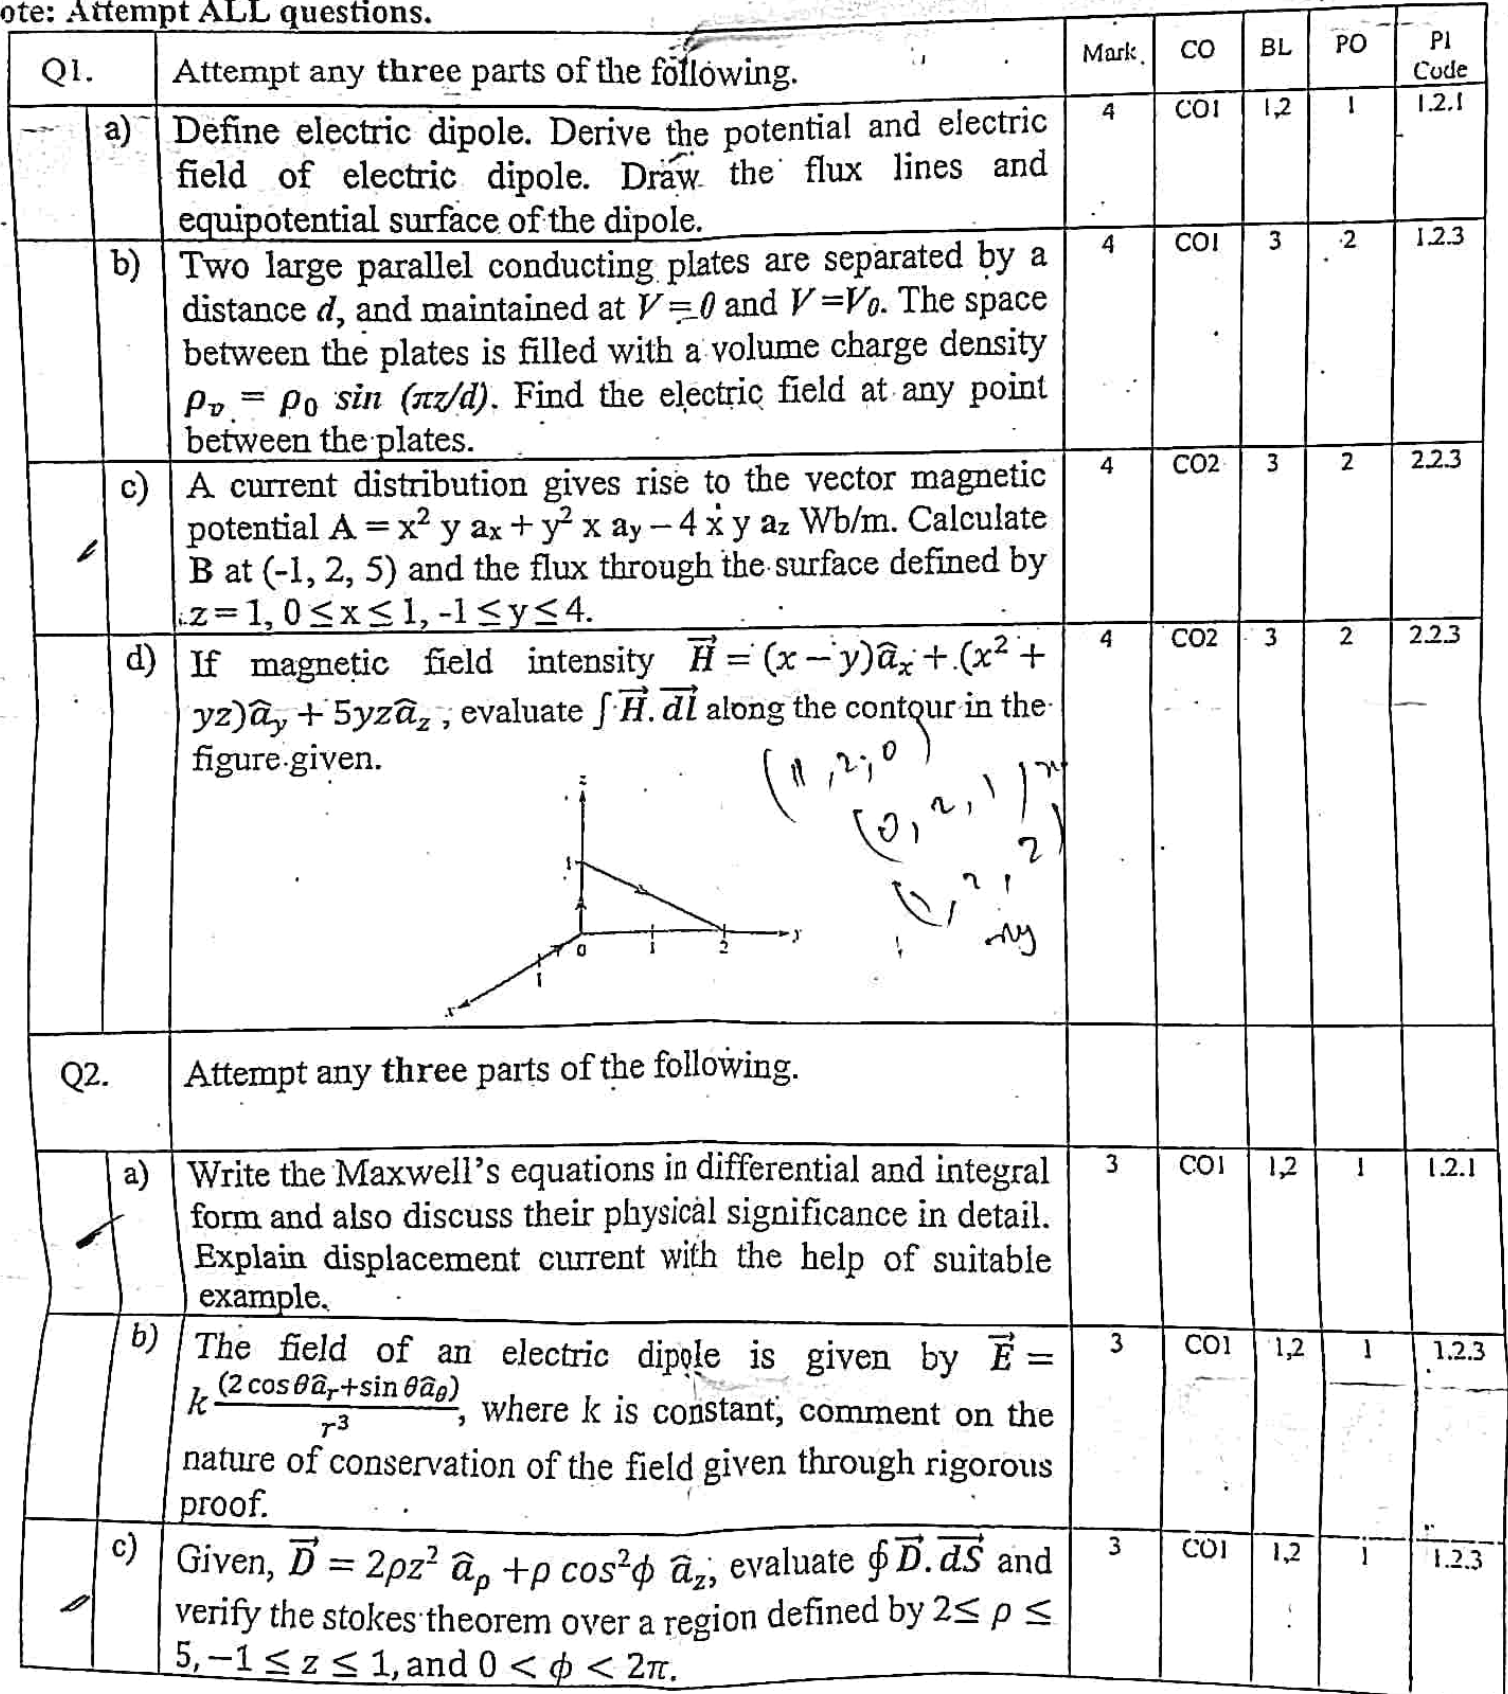 ote: Attempt ALL questions.
Q1. Attempt any three parts of the following. Mark CO BL PO PI Code
a) Define electric dipole. Derive the potential and electric 4 CO1 1,2 1 1.2.1
field of electric dipole. Draw the flux lines and
equipotential surface of the dipole.
b) Two large parallel conducting plates are separated by a 4 CO1 3 2 1.2.3
distance d, and maintained at V=0 and V=V₀. The space
between the plates is filled with a volume charge density
ρᵥ = ρ₀ sin (πz/d). Find the electric field at any point
between the plates.
c) A current distribution gives rise to the vector magnetic 4 CO2 3 2 2.2.3
potential A = x² y ax + y² x ay – 4 x y az Wb/m. Calculate
B at (-1, 2, 5) and the flux through the surface defined by
z = 1, 0 ≤ x ≤ 1, -1 ≤ y ≤ 4.
d) If magnetic field intensity H⃗ = (x − y)âₓ + (x² + 4 CO2 3 2 2.2.3
yz)â_y + 5yzâ_z, evaluate ∫ H⃗. dl⃗ along the contour in the
figure given.
(1, 2, 0)
(0, 2, 1)
z
1
0 1 2 y
1
x
Q2. Attempt any three parts of the following.
a) Write the Maxwell's equations in differential and integral 3 CO1 1,2 1 1.2.1
form and also discuss their physical significance in detail.
Explain displacement current with the help of suitable
example.
b) The field of an electric dipole is given by E⃗ = 3 CO1 1,2 1 1.2.3
k (2 cosθâ_r+sin θâ_θ)/r³, where k is constant, comment on the
nature of conservation of the field given through rigorous
proof.
c) Given, D⃗ = 2ρz² â_ρ +ρ cos²ϕ â_z; evaluate ∮ D⃗. dS⃗ and 3 CO1 1,2 1 1.2.3
verify the stokes theorem over a region defined by 2≤ ρ ≤
5, −1 ≤ z ≤ 1, and 0 < ϕ < 2π.